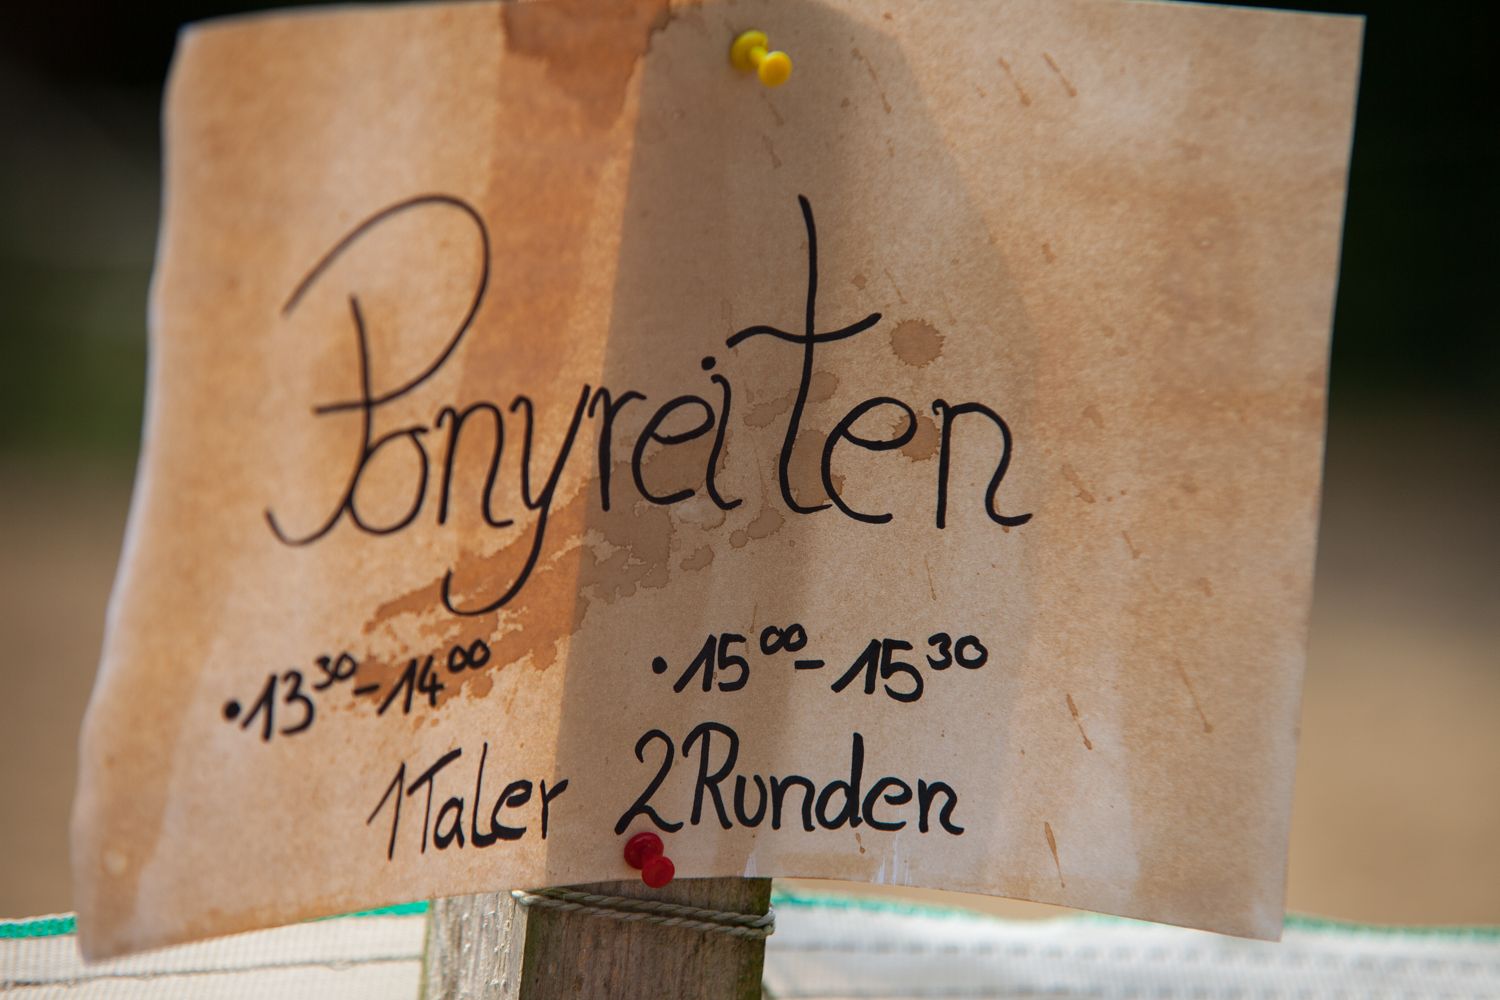 Ponyreiten
• 13³⁰ - 14⁰⁰ • 15⁰⁰ - 15³⁰
1 Taler 2 Runden